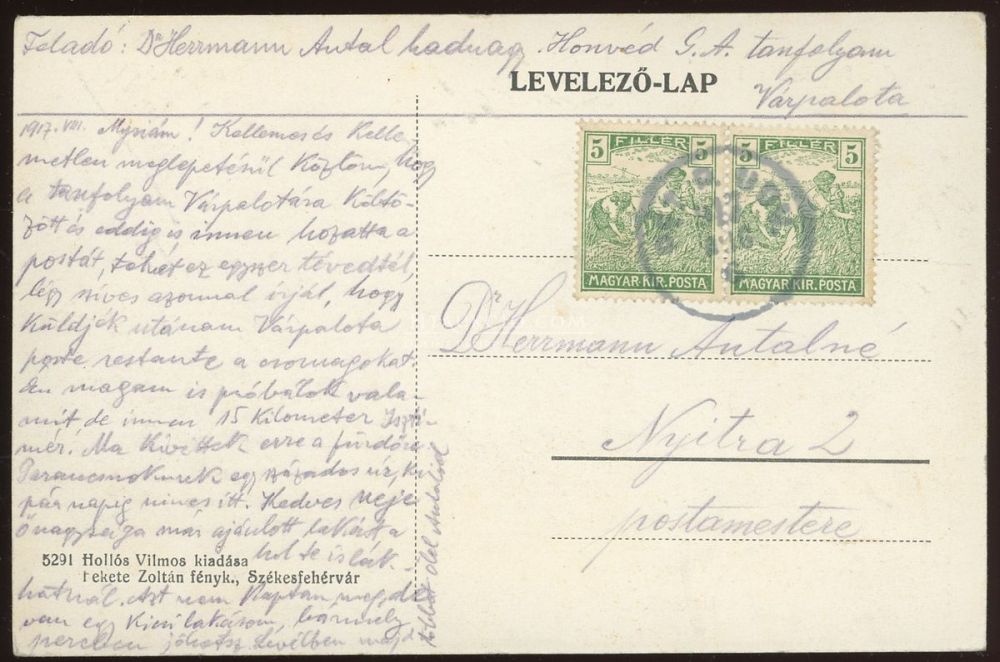 Feladó: Dr Herrmann Antal hadnagy. Honvéd G. A. tanfolyam
Várpalota
LEVELEZŐ-LAP
1917. VIII. Myriám! Kellemes és kelle-
metlen meglepetésül közlöm, hogy
a tanfolyam Várpalotára költö-
zött és eddig is innen hozatta a
postát, tehát ez egyszer tévedtél,
légy szíves azonnal írjál, hogy
küldjék utánam Várpalota
poste restante a csomagokat.
Én magam is próbálok vala-
mit de innen 15 kilometer Isztí-
mér. Ma kivittek erre a fürdőre
Parancsnokunk egy százados úr, ki
pár napig nincs itt. Kedves neje
őnagysága már ajánlott lakást a
hol te is lak-
hatnál. Azt nem kaptam meg, de
van egy kicsi lakásom, bármely
percben jöhetsz. Levélben majd
többet ölel Antalod
5 FILLÉR 5
MAGYAR KIR. POSTA
5 FILLÉR 5
MAGYAR KIR. POSTA
Dr Herrmann Antalné
Nyitra 2
postamestere
5291 Hollós Vilmos kiadása
Fekete Zoltán fényk., Székesfehérvár